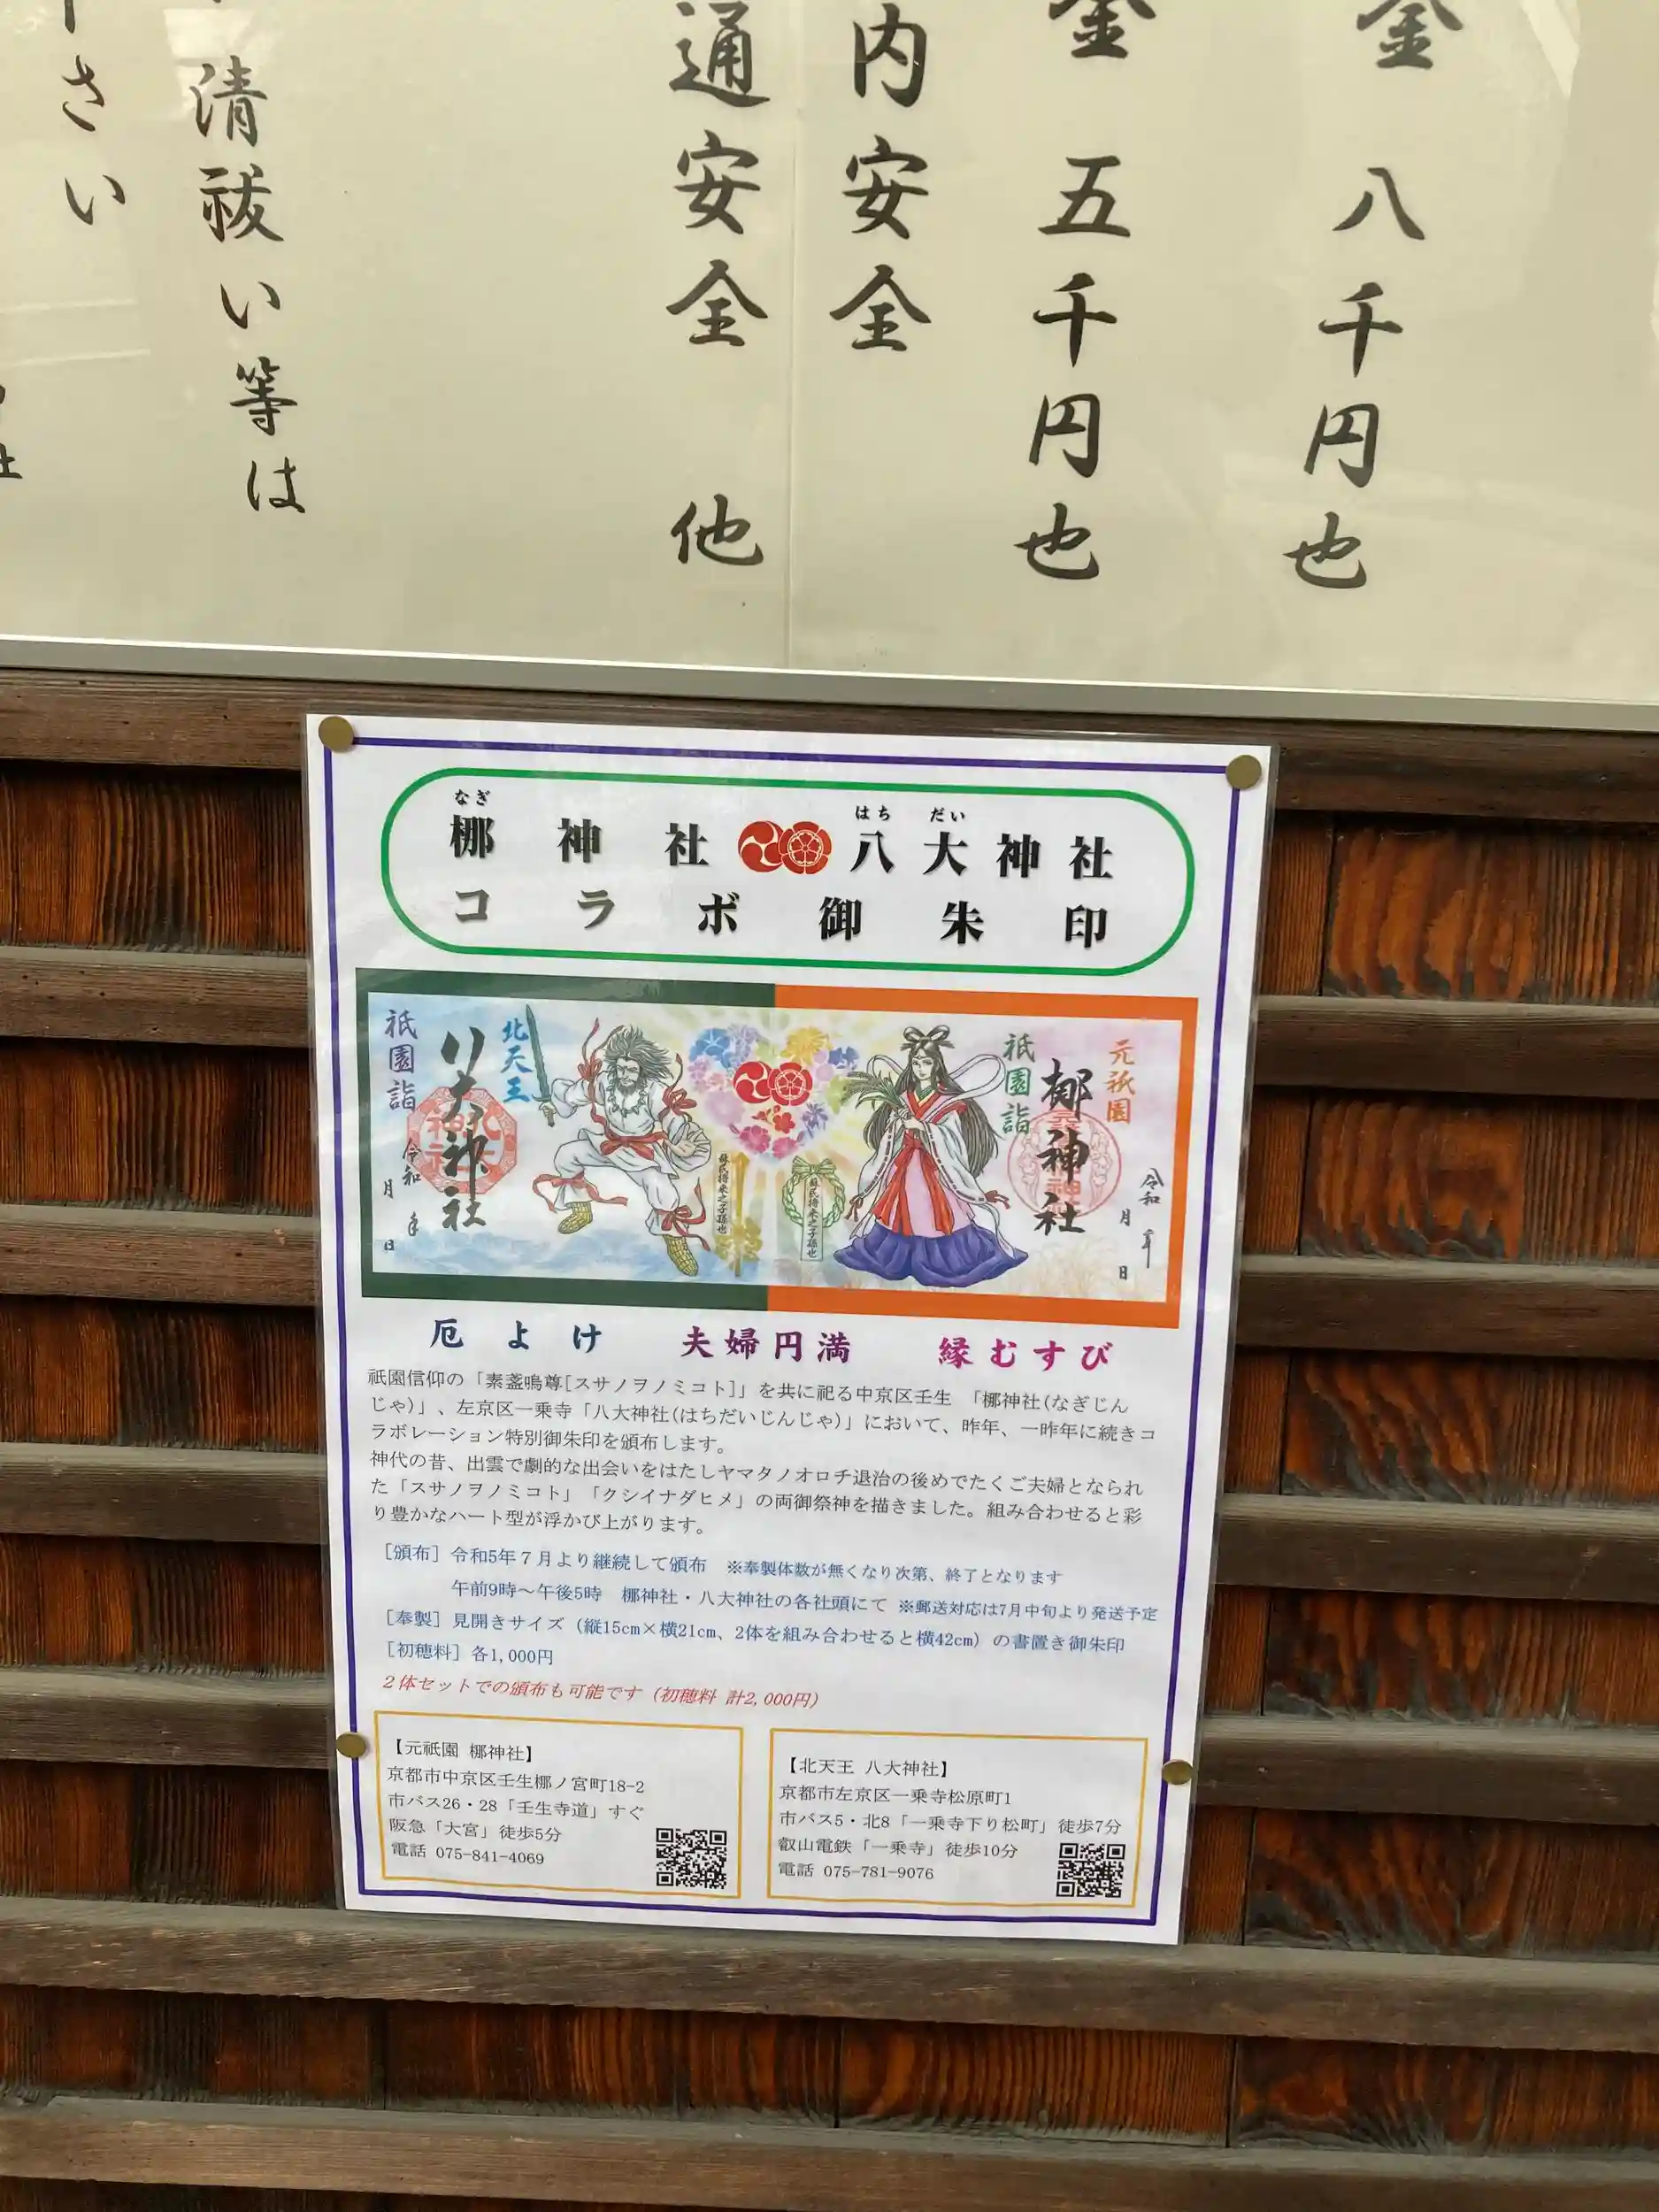 金 八千円也
金 五千円也
内安全
通安全 他
清祓い等は
さい
社
なぎ はち だい
梛神社 八大神社
コラボ御朱印
祇園詣
八大神社
北天王
令和 年
月 日
祇園詣
梛神社
元祇園
令和 年
月 日
蘇民将来之子孫也
蘇民将来之子孫也
厄よけ 夫婦円満 縁むすび
祇園信仰の「素盞嗚尊[スサノヲノミコト]」を共に祀る中京区壬生 「梛神社(なぎじん
じゃ)」、左京区一乗寺「八大神社(はちだいじんじゃ)」において、昨年、一昨年に続きコ
ラボレーション特別御朱印を頒布します。
神代の昔、出雲で劇的な出会いをはたしヤマタノオロチ退治の後めでたくご夫婦となられ
た「スサノヲノミコト」「クシイナダヒメ」の両御祭神を描きました。組み合わせると彩
り豊かなハート型が浮かび上がります。
[頒布] 令和5年7月より継続して頒布 ※奉製体数が無くなり次第、終了となります
午前9時～午後5時 梛神社・八大神社の各社頭にて ※郵送対応は7月中旬より発送予定
[奉製] 見開きサイズ（縦15cm×横21cm、2体を組み合わせると横42cm）の書置き御朱印
[初穂料] 各1,000円
2体セットでの頒布も可能です（初穂料 計2,000円）
【元祇園 梛神社】
京都市中京区壬生梛ノ宮町18-2
市バス26・28「壬生寺道」すぐ
阪急「大宮」徒歩5分
電話 075-841-4069
【北天王 八大神社】
京都市左京区一乗寺松原町1
市バス5・北8「一乗寺下り松町」徒歩7分
叡山電鉄「一乗寺」徒歩10分
電話 075-781-9076